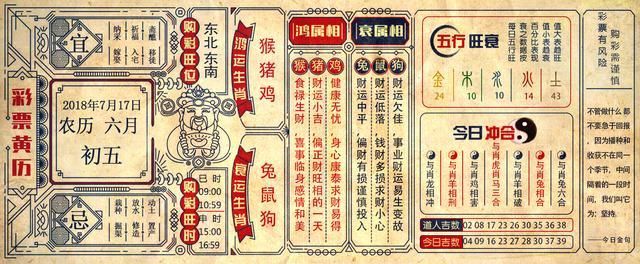 彩票黄历
宜
斋醮 移徙
祈福 入宅
纳采 嫁娶
2018年7月17日
农历 六月
初五
忌
动土 置产
放水 修造
栽种 掘渠
购彩旺位
东北 东南
购彩旺时
巳时
09:00
10:59
申时
15:00
16:59
鸿运生肖
猴猪鸡
衰运生肖
兔鼠狗
鸿属相
猴 食禄生财 喜事临身感情和美
猪 财运小吉 偏正财旺相的一天
鸡 健康无忧 身心康泰求财易得
衰属相
兔 财运中平 偏财有损谨慎投入
鼠 财运低落 钱财多损求财小心
狗 财运欠佳 事业财运易生变故
五行旺衰
值大表趋旺
值小表趋衰
百分比表现
衰之数据按
每日五行旺
金 木 水 火 土
24 10 10 14 43
今日冲合
与肖龙相冲
与肖羊相刑
与肖鸡相害
与肖虎马三合
与肖羊相破
与肖兔相合
与肖兔六合
道人吉数 02 08 17 20 23 25 32 35 38
今日吉数 04 09 16 23 27 30 37 38 39
购彩需谨慎
彩票有风险
不管做什么 都
不要急于回报
，因为播种和
收获不在同一
个季节，中间
隔着的一段时
间，我们叫它
为：坚持。
——今日金句